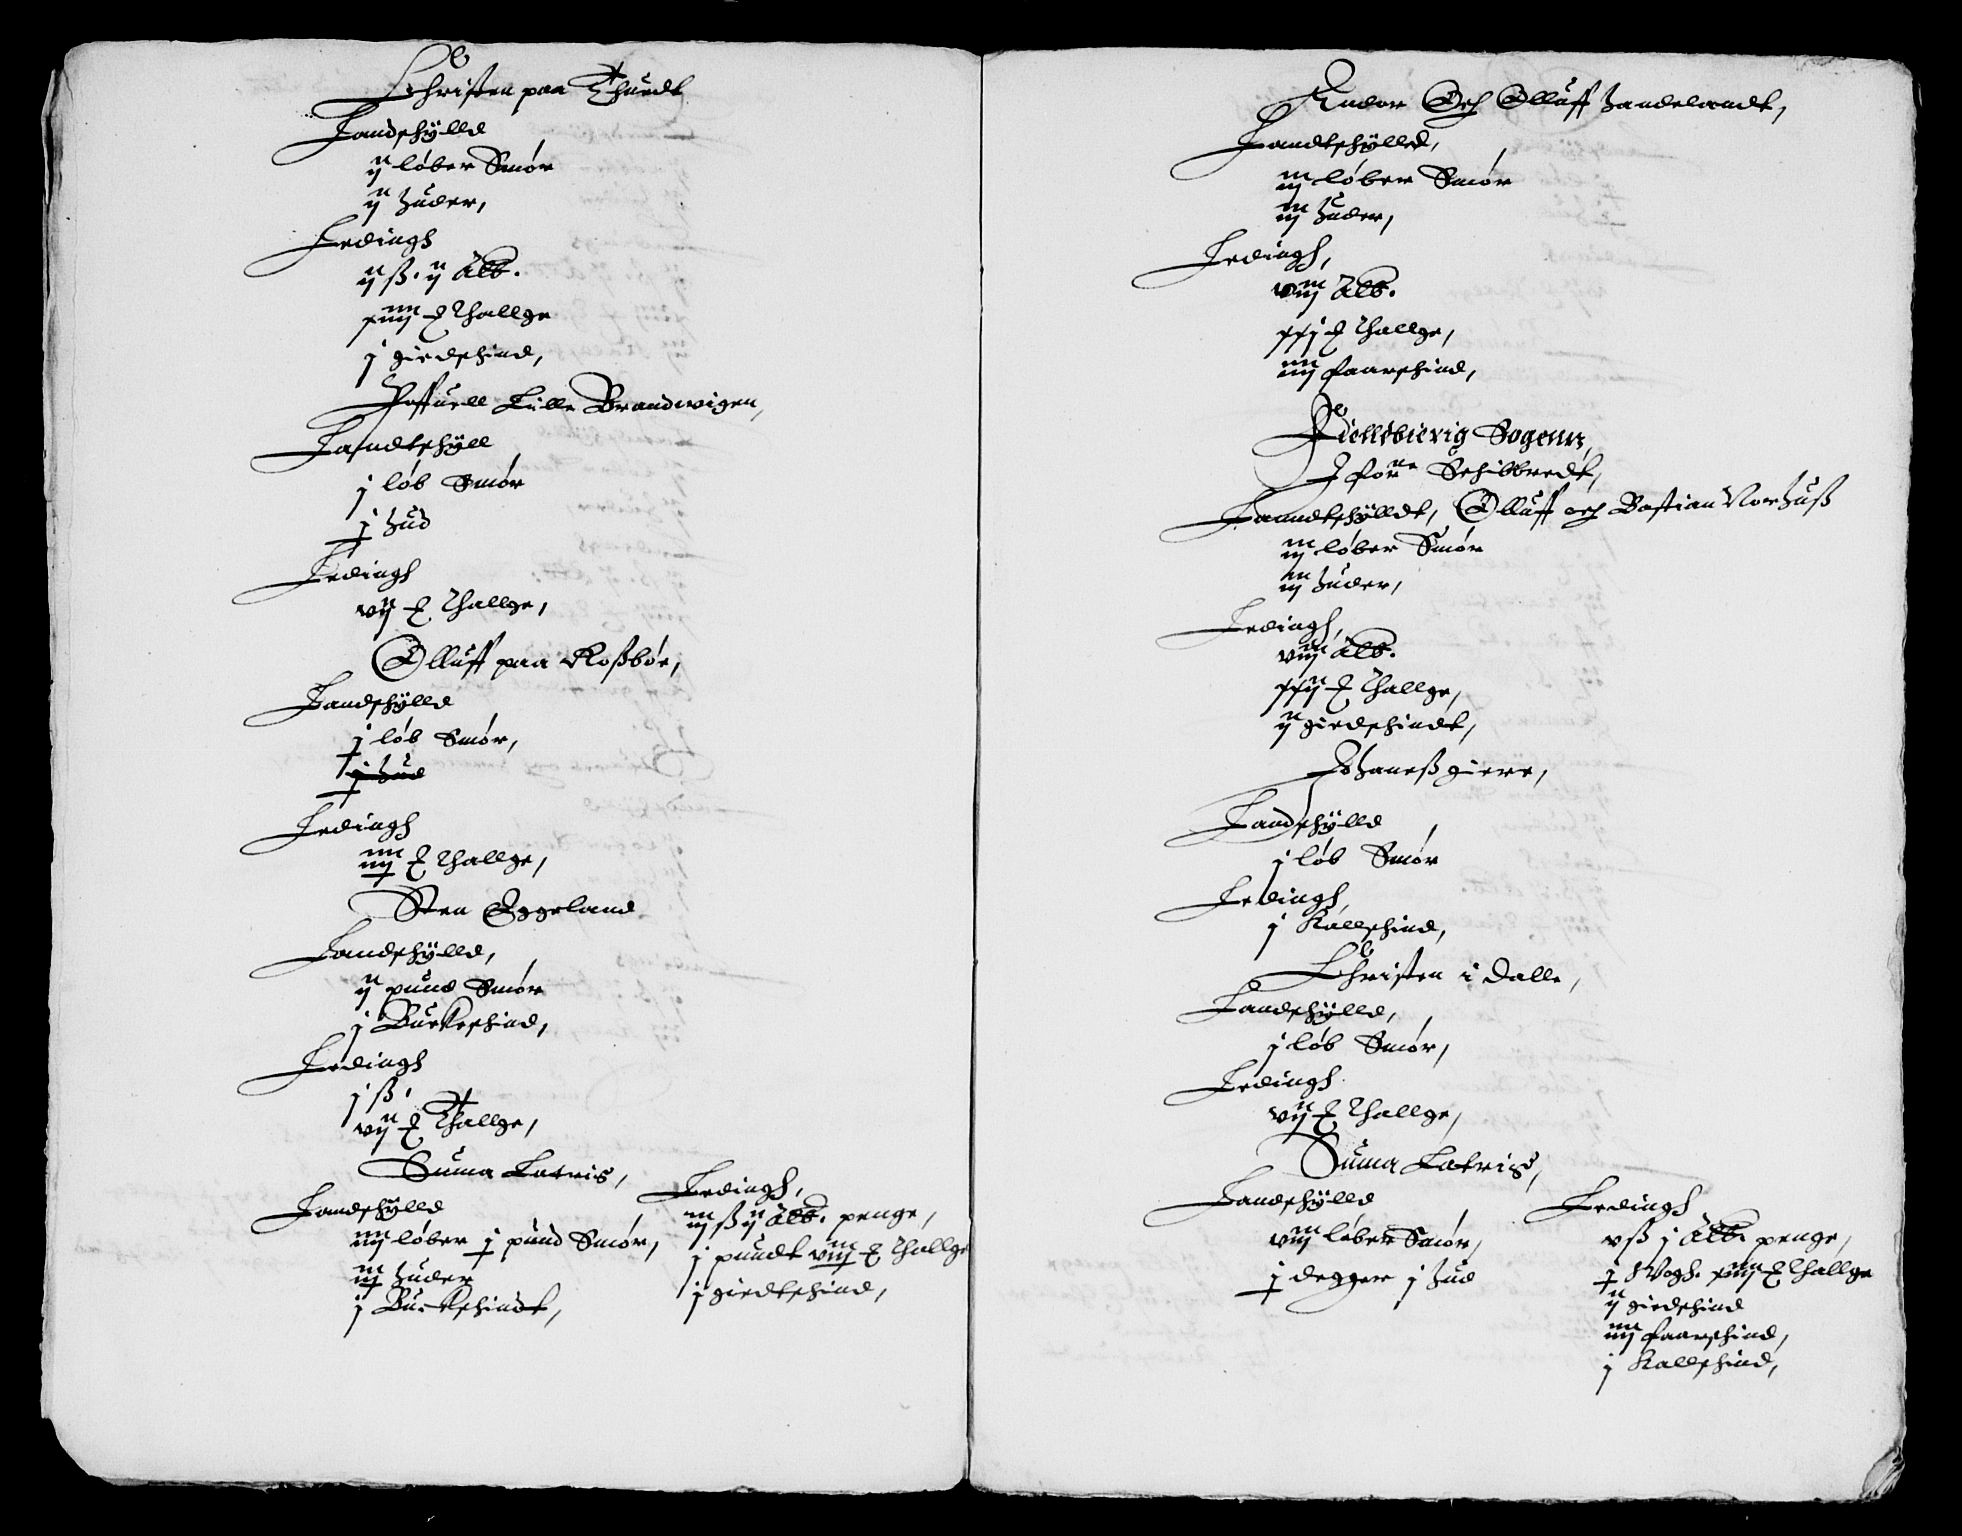 Christen paa Thuedt
Landschÿlld
ij løber Smør
ij huder,
Ledingh
ij ß. ij alb.
xiiij ℔ Thallge
j giedschind,
Possuell Lille Brandwigen,
Landtschÿll
j løb Smør
j hud
Ledingh
vij ℔ Thallge,
Olluff paa Roßbøe,
Landschÿlld
j løb Smør,
j hud
Ledingh
iiij ℔ Thallge,
Sten Eggeland
Landschÿlld,
ij pund Smør
j Buckeschind,
Ledingh
j ß
vij ℔ Thallge,
Suma Latris,
Landschÿlld
iiij løber j pund Smør,
iij huder
j Buckschindt,
Ledingh,
iij ß ij alb. penge,
j pundt viij ℔ Thallge
j giedtschind,
Endor Och Olluff handelandt,
Landtschÿlld,
iij løber Smør
iij huder,
Ledingh,
viij alb.
xxj ℔ Thallge,
iiij faarschind,
Fielleбierig Sogenn,
Schibbredt,
Lanndtschÿlldt, Olluff och Bastian Norhuß
iij løber Smør
iij huder,
Ledingh,
viij alb.
xxij ℔ Thallge,
ij giedschindt,
Johaneß giere,
Landschÿlld
j løb Smør
Ledingh,
j Kallschind,
Christen i Dalle,
Landschÿlld,
j løb Smør,
Ledingh
vij ℔ Thallge,
Suma Latris,
Landschÿlld
viij løber Smør,
j degger j hud
Ledingh
v ß j alb. penge,
j Wogh. xiiij ℔ Thallge
ij giedschind
iiij faarschind,
j Kallschind,